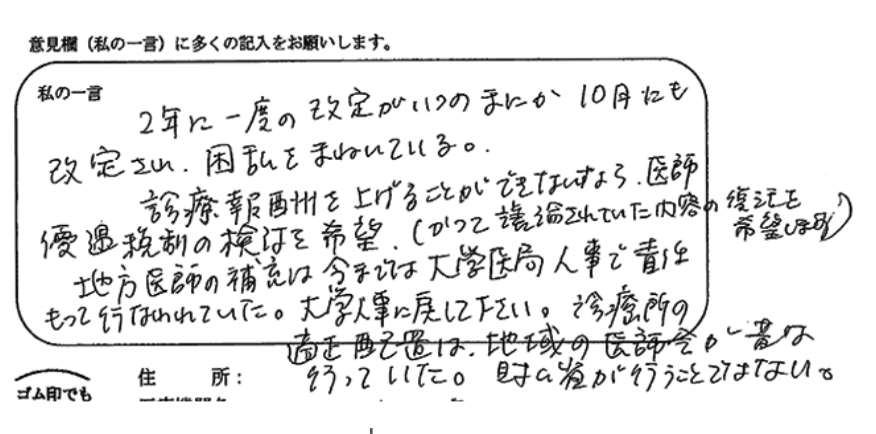 意見欄（私の一言）に多くの記入をお願いします。
私の一言
2年に一度の改定がいつのまにか 10月にも
改定され、困乱をまねいている。
診療報酬を上げることができないなら、医師
優遇税制の検討を希望。（かつて議論されていた内容の復活を
希望します）
地方医師の補充は今までは大学医局人事で責任
もって行なわれていた。大学人事に戻して下さい。診療所の
適正配置は、地域の医師会が昔は
行っていた。財ム省が行うことではない。
住 所：
ゴム印でも